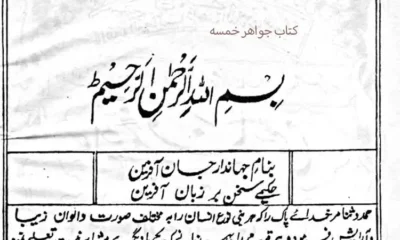 کتاب جواهر خمسه
بسم الله الرحمن الرحیم
بنام جهاندار جان آفرین
حکیمے سخن بر زبان آفرین
حمد و ثنا مر خدائے پاک را کہ هر بنی نوع انسان را بہ مختلف صورت و الوان زیبا